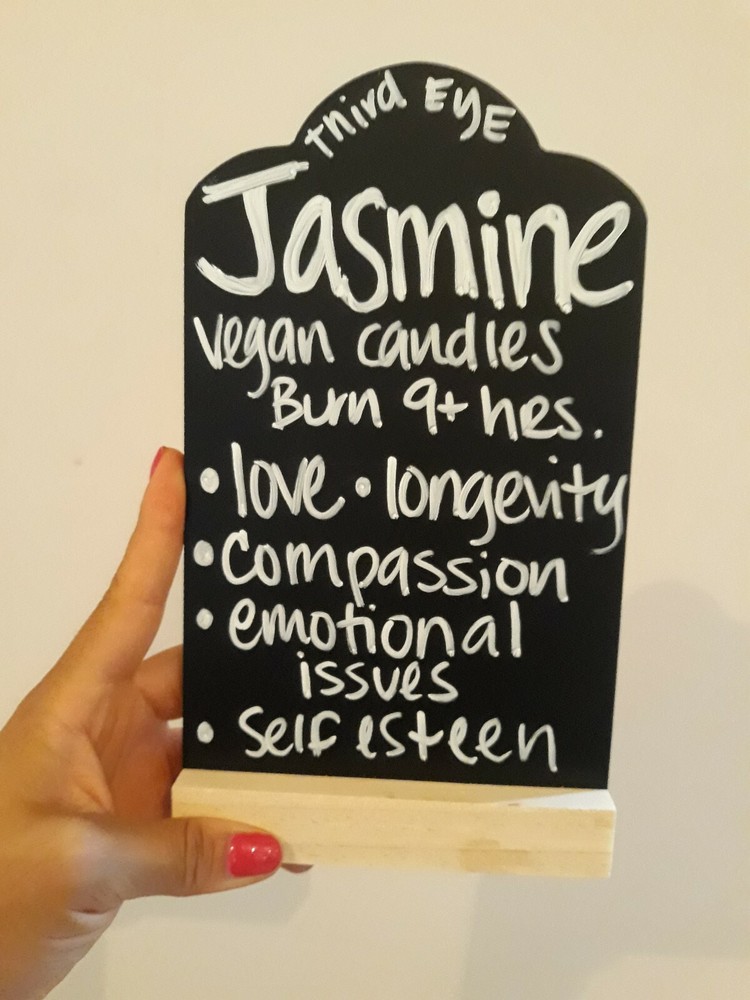 Third EYE
Jasmine
vegan candles
Burn 9+ hrs.
• love • longevity
• Compassion
• emotional
issues
• Self esteen